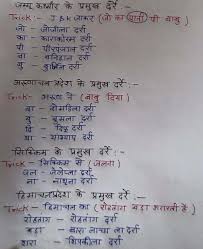 जम्मू कश्मीर के प्रमुख दर्रे:-
Trick - J & K जाकर (जो का पानी पी बाबु)
जो - जोजीला दर्रा
का - काराकोरम दर्रा
पी - पीरपंजाल दर्रा
बा - बनिहाल दर्रा
बु - बुर्जिल दर्रा
अरुणाचल प्रदेश के प्रमुख दर्रे:-
Trick:- अरूण ने (बाबु दिया)
बो - बोमडिला दर्रा
बु - दर्रा
दि - दिफू दर्रा
या - यांग्याप दर्रा
सिक्किम के प्रमुख दर्रे:-
Trick:- सिक्किम से (जलना)
जल - जेलेप्ला दर्रा
ना - नाथूला दर्रा
हिमाचल प्रदेश के प्रमुख दर्रे:-
Trick:- हिमाचल का (रोहतांग बड़ा है)
रोहतांग - रोहतांग दर्रा
बड़ा - बारा लाचा ला दर्रा
शिपकीला दर्रा